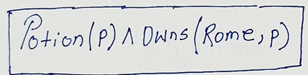 Potion(p) ∧ Owns(Rome, p)